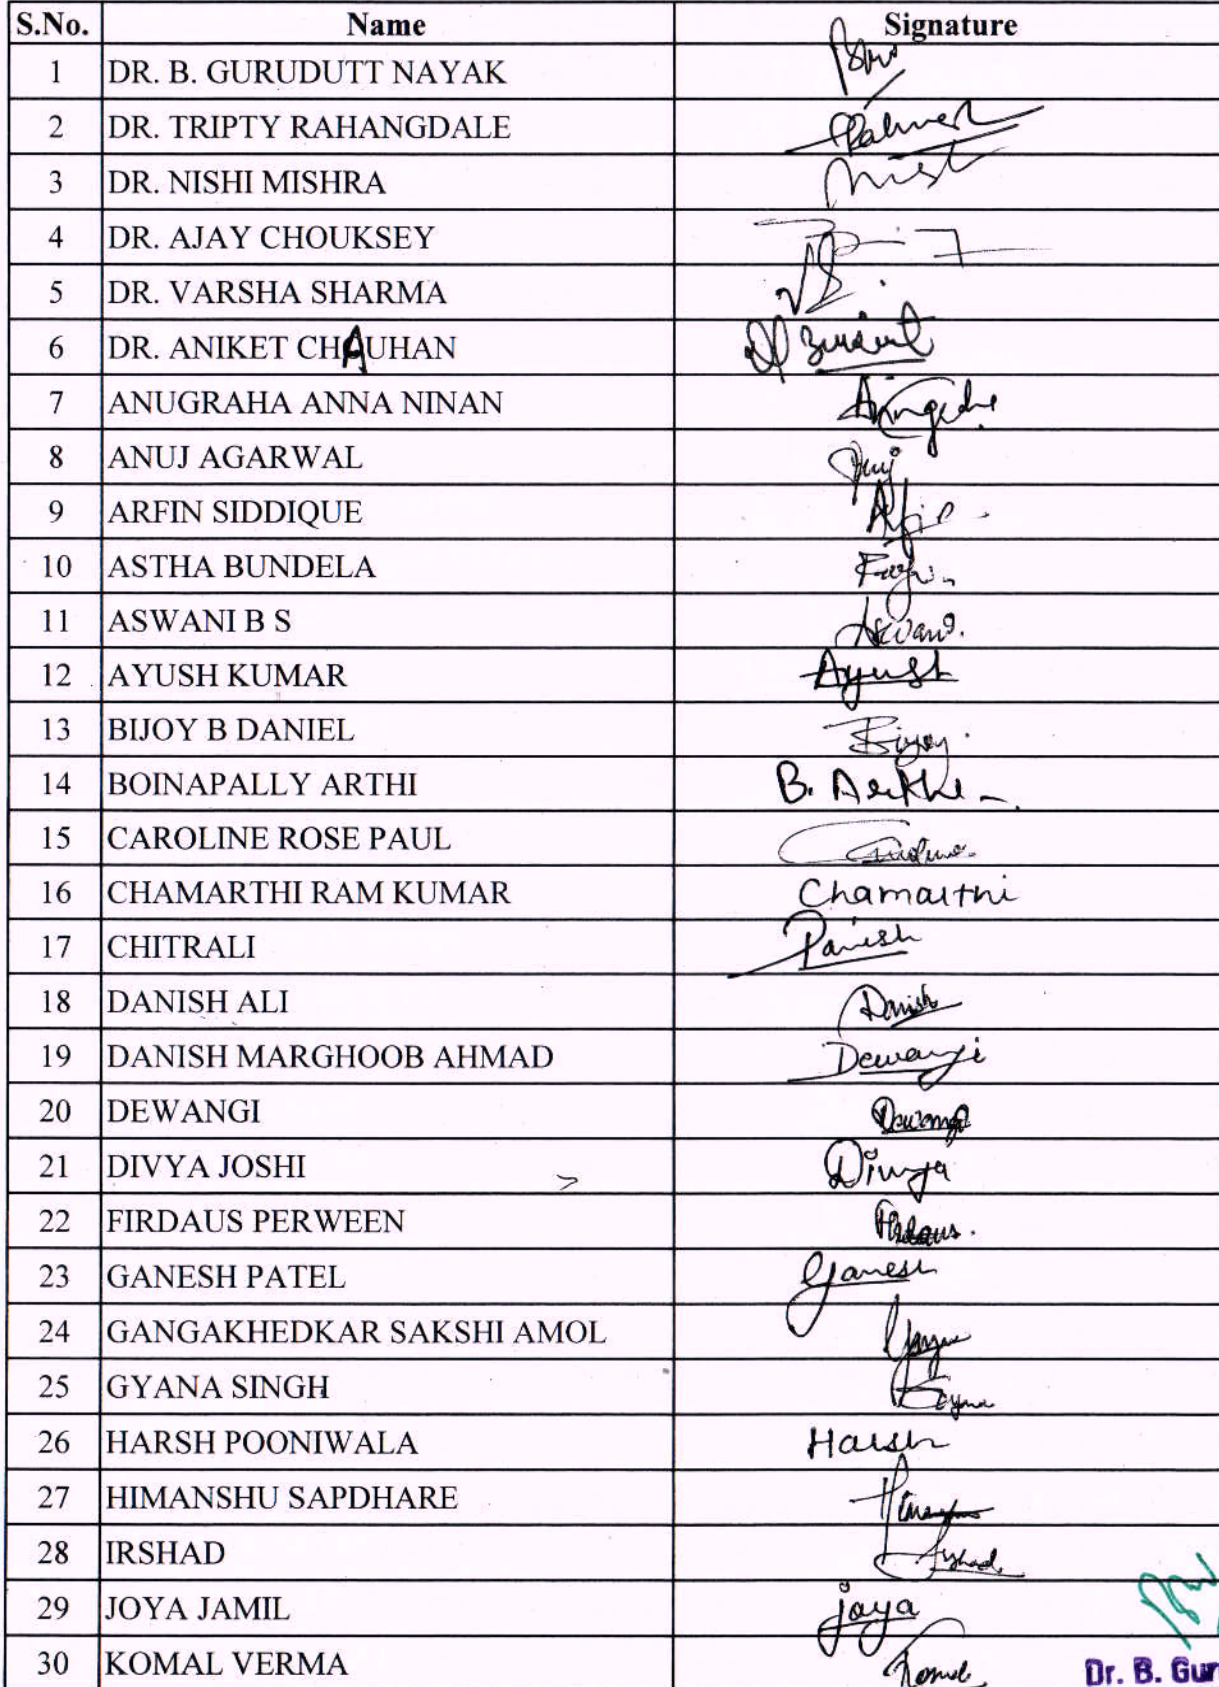 S.No. Name Signature
1 DR. B. GURUDUTT NAYAK
2 DR. TRIPTY RAHANGDALE
3 DR. NISHI MISHRA
4 DR. AJAY CHOUKSEY
5 DR. VARSHA SHARMA
6 DR. ANIKET CHAUHAN
7 ANUGRAHA ANNA NINAN
8 ANUJ AGARWAL Anuj
9 ARFIN SIDDIQUE
10 ASTHA BUNDELA
11 ASWANI B S
12 AYUSH KUMAR Ayush
13 BIJOY B DANIEL Bijoy
14 BOINAPALLY ARTHI
15 CAROLINE ROSE PAUL
16 CHAMARTHI RAM KUMAR Chamarthi
17 CHITRALI Danish
18 DANISH ALI Danish
19 DANISH MARGHOOB AHMAD Dewangi
20 DEWANGI Dewangi
21 DIVYA JOSHI Divya
22 FIRDAUS PERWEEN
23 GANESH PATEL Ganesh
24 GANGAKHEDKAR SAKSHI AMOL
25 GYANA SINGH
26 HARSH POONIWALA Harsh
27 HIMANSHU SAPDHARE
28 IRSHAD
29 JOYA JAMIL joya
30 KOMAL VERMA Komal
Dr. B. Gur